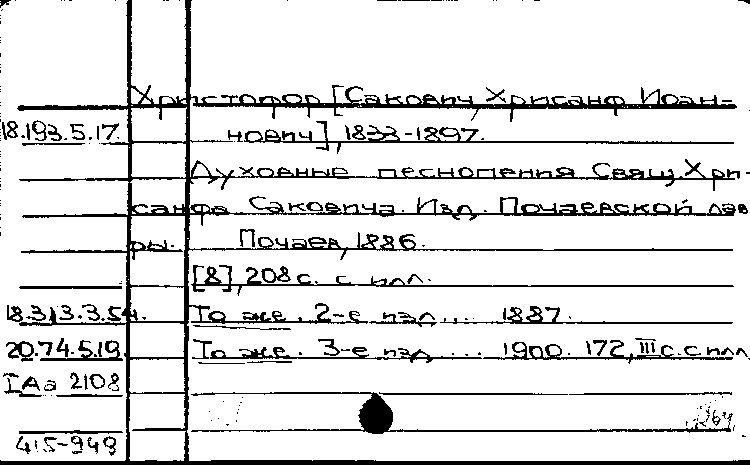 Христофор [Сакович, Хрисанф Иоан-
18.193.5.17. нович], 1833-1897.
Духовные песнопения Свящ. Хри-
санфа Саковича. Изд. Почаевской лав
ры. Почаев, 1886.
[8], 208 с. с илл.
18.313.3.54. То же. 2-е изд. ... 1887.
20.74.5.19. То же. 3-е изд. ... 1900. 172, III с. с илл
IАа 2108
415-949